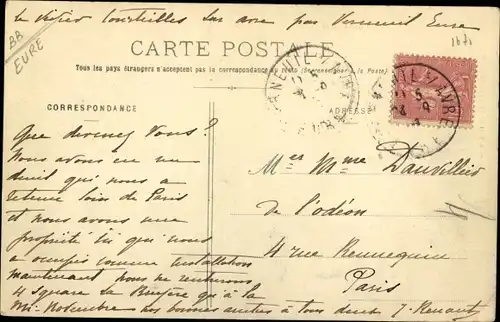 le Vésier Courteilles sur avre par Verneuil Eure
BB
EURE
CARTE POSTALE
Tous les pays étrangers n'acceptent pas la correspondance au recto (Se renseigner à la Poste)
CORRESPONDANCE
ADRESSE
Que devenez vous?
Nous avons eu un
deuil qui nous a
retenu loin de Paris
et nous avons une
propriété ici qui nous
a occupés comme installation
maintenant nous ne rentrerons
4 Square La Bruyère qu'à la
Mi-Novembre nos bonnes amitiés à tous deux J. Renault
Mr et Mme Dauvilliers
de l'odéon
4 rue Rennequin
Paris